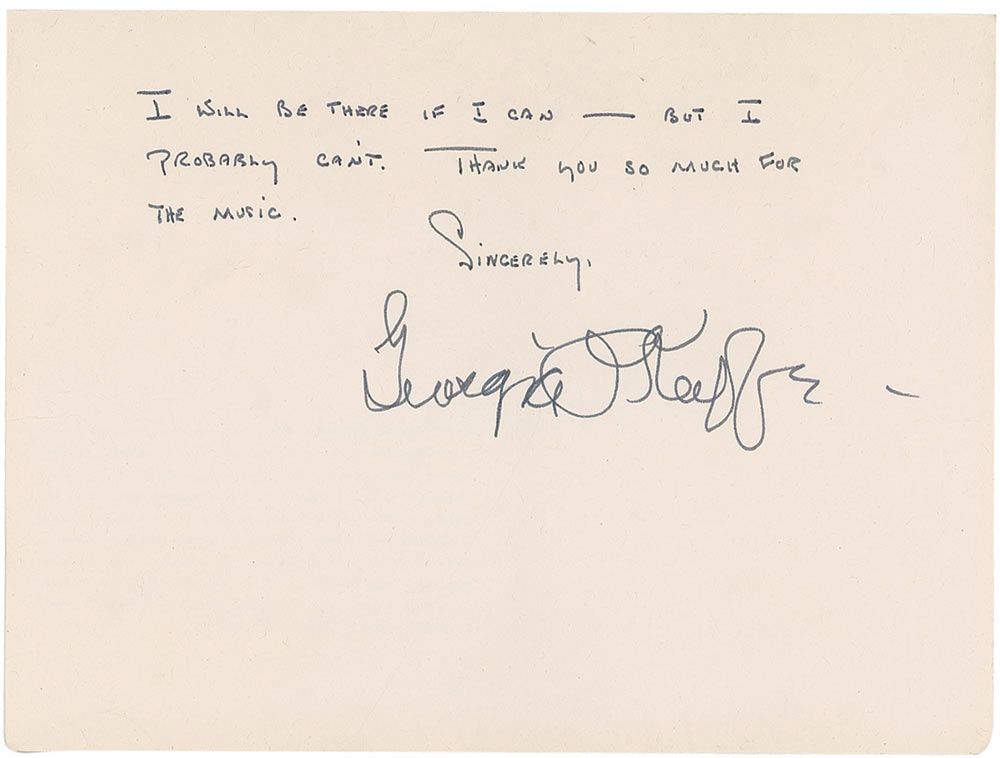 I WILL BE THERE IF I CAN — BUT I
PROBABLY CAN'T. THANK YOU SO MUCH FOR
THE MUSIC.
SINCERELY,
Georgia O'Keeffe —